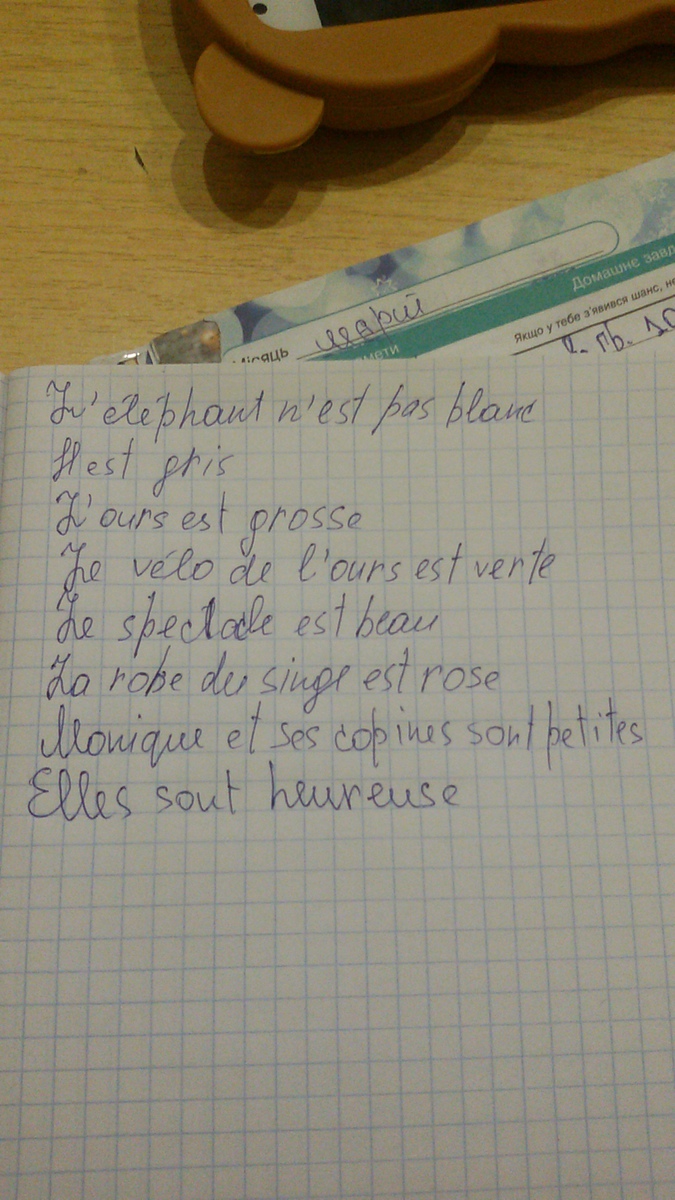 Домашнє завд
Місяць марті
мети
Якщо у тебе з'явився шанс, не
L'éléphant n'est pas blanc
Il est gris
L'ours est grosse
Le vélo de l'ours est verte
Le spectacle est beau
La robe du singe est rose
Monique et ses copines sont petites
Elles sont heureuse